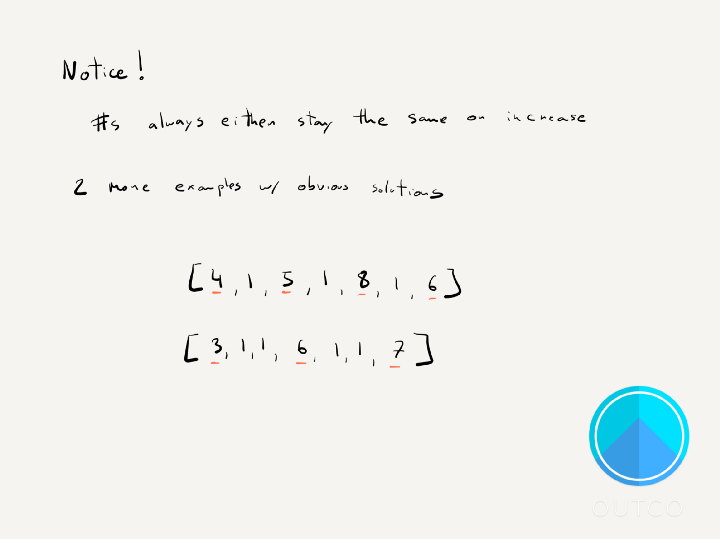 Notice!
#s always either stay the same or increase
2 more examples w/ obvious solutions
[4, 1, 5, 1, 8, 1, 6]
[3, 1, 1, 6, 1, 1, 7]
OUTCO